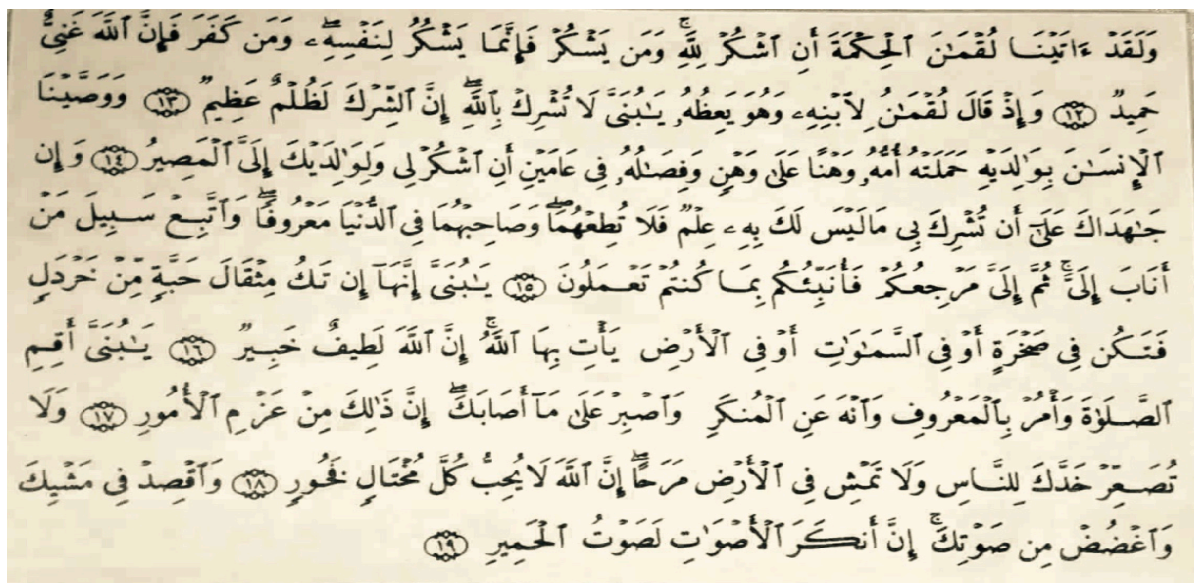 وَلَقَدۡ ءَاتَيۡنَا لُقۡمَٰنَ ٱلۡحِكۡمَةَ أَنِ ٱشۡكُرۡ لِلَّهِۚ وَمَن يَشۡكُرۡ فَإِنَّمَا يَشۡكُرُ لِنَفۡسِهِۦۖ وَمَن كَفَرَ فَإِنَّ ٱللَّهَ غَنِيٌّ
حَمِيدٞ ١٢ وَإِذۡ قَالَ لُقۡمَٰنُ لِٱبۡنِهِۦ وَهُوَ يَعِظُهُۥ يَٰبُنَيَّ لَا تُشۡرِكۡ بِٱللَّهِۖ إِنَّ ٱلشِّرۡكَ لَظُلۡمٌ عَظِيمٞ ١٣ وَوَصَّيۡنَا
ٱلۡإِنسَٰنَ بِوَٰلِدَيۡهِ حَمَلَتۡهُ أُمُّهُۥ وَهۡنًا عَلَىٰ وَهۡنٖ وَفِصَٰلُهُۥ فِي عَامَيۡنِ أَنِ ٱشۡكُرۡ لِي وَلِوَٰلِدَيۡكَ إِلَيَّ ٱلۡمَصِيرُ ١٤ وَإِن
جَٰهَدَاكَ عَلَىٰٓ أَن تُشۡرِكَ بِي مَا لَيۡسَ لَكَ بِهِۦ عِلۡمٞ فَلَا تُطِعۡهُمَاۖ وَصَاحِبۡهُمَا فِي ٱلدُّنۡيَا مَعۡرُوفٗاۖ وَٱتَّبِعۡ سَبِيلَ مَنۡ
أَنَابَ إِلَيَّۚ ثُمَّ إِلَيَّ مَرۡجِعُكُمۡ فَأُنَبِّئُكُم بِمَا كُنتُمۡ تَعۡمَلُونَ ١٥ يَٰبُنَيَّ إِنَّهَآ إِن تَكُ مِثۡقَالَ حَبَّةٖ مِّنۡ خَرۡدَلٖ
فَتَكُن فِي صَخۡرَةٍ أَوۡ فِي ٱلسَّمَٰوَٰتِ أَوۡ فِي ٱلۡأَرۡضِ يَأۡتِ بِهَا ٱللَّهُۚ إِنَّ ٱللَّهَ لَطِيفٌ خَبِيرٞ ١٦ يَٰبُنَيَّ أَقِمِ
ٱلصَّلَوٰةَ وَأۡمُرۡ بِٱلۡمَعۡرُوفِ وَٱنۡهَ عَنِ ٱلۡمُنكَرِ وَٱصۡبِرۡ عَلَىٰ مَآ أَصَابَكَۖ إِنَّ ذَٰلِكَ مِنۡ عَزۡمِ ٱلۡأُمُورِ ١٧ وَلَا
تُصَعِّرۡ خَدَّكَ لِلنَّاسِ وَلَا تَمۡشِ فِي ٱلۡأَرۡضِ مَرَحًاۖ إِنَّ ٱللَّهَ لَا يُحِبُّ كُلَّ مُخۡتَالٖ فَخُورٖ ١٨ وَٱقۡصِدۡ فِي مَشۡيِكَ
وَٱغۡضُضۡ مِن صَوۡتِكَۚ إِنَّ أَنكَرَ ٱلۡأَصۡوَٰتِ لَصَوۡتُ ٱلۡحَمِيرِ ١٩